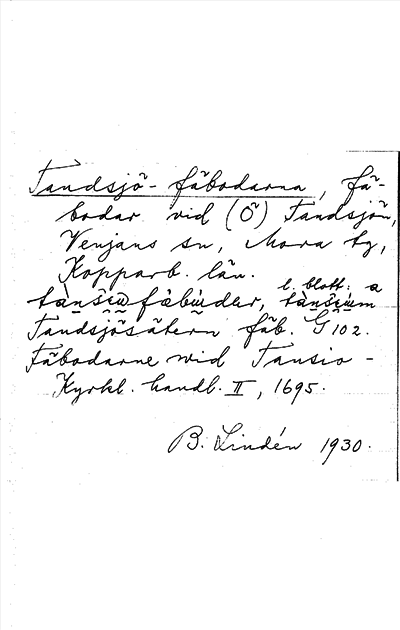 Tandsjö-fäbodarna, fä-
bodar vid (Ö) Tandsjön,
Venjans sn, Mora tg,
Kopparb. län.
l. blott. a
Tandsjösätern fäb. G 102.
Fäbodarne wid Tansio -
Kyrkl. handl. II, 1695.
B. Lindén 1930.